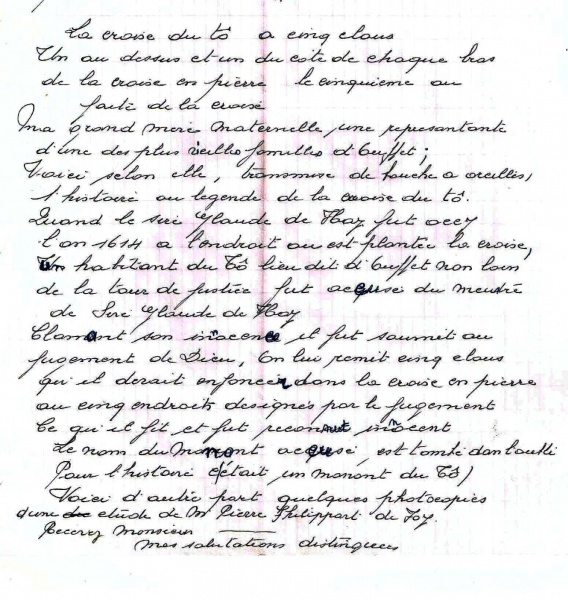 La croise du tô a cinq claus
Un au dessus et un du coté de chaque bras
de la croise en pierre le cinquieme au
faite de la croise
Ma grand mere maternelle, une representante
d'une des plus vieilles familles d'Ouffet;
Voici selon elle, transmise de bouche a oreilles,
l'histoire ou legende de la croise du tô.
Quand le sire Glaude de Haz fut occy
l'an 1614 a l'endroit ou est plantée la croise,
Un habitant du Tô lieu dit d'Ouffet non loin
de la tour de justice fut accusé du meurtre
de Sire Glaude de Haz
Clamant son inocence il fut soumit au
jugement de Dieu, On lui remit cinq claus
qu'il devait enfoncer dans la croise en pierre
au cinq endroits designés par le jugement
Ce qu'il fit et fut reconnut inocent
Le nom du manant accusé, est tombé dans l'oubli
Pour l'histoire c'était un manant du Tô)
Voici d'autre part quelques photocopies
d'une etude de Mr Pierre Philippart de Foy
Recevez Monsieur
mes salutations distinguees